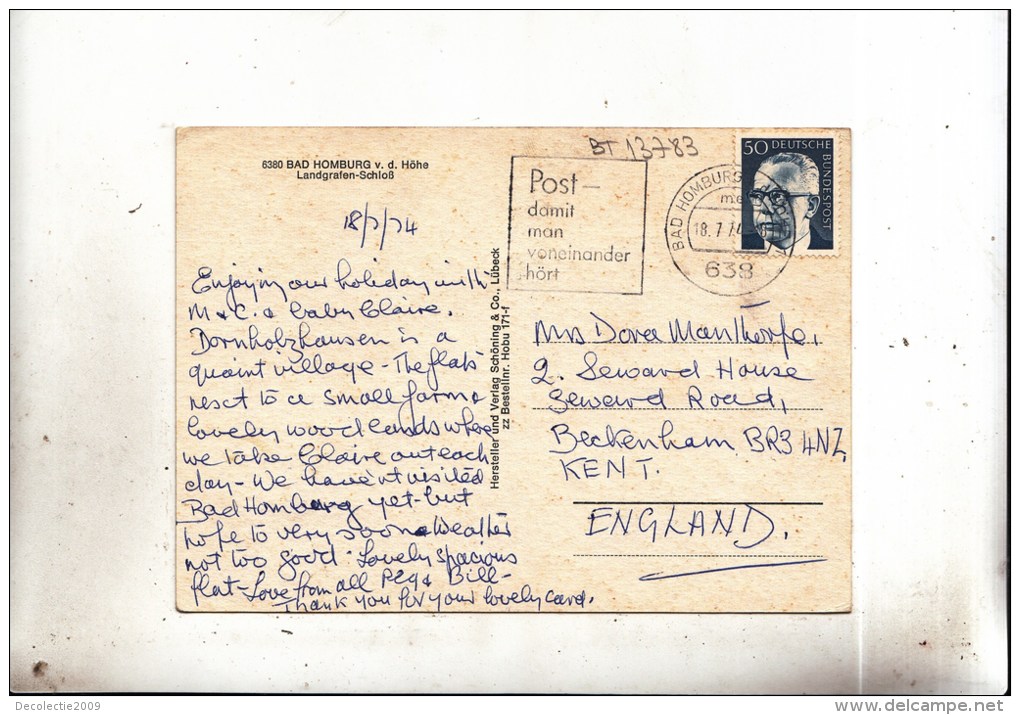 BT 13783
6380 BAD HOMBURG v. d. Höhe
Landgrafen-Schloß
Post-
damit
man
voneinander
hört
BAD HOMBURG
18.7.74
638
50 DEUTSCHE
BUNDESPOST
18/7/74
Enjoying our holiday with
M & C. & baby Claire.
Dornholzhausen is a
quaint village - The flat's
next to a small farm &
lovely woodlands where
we take Claire out each
day - We haven't visited
Bad Homburg yet - but
hope to very soon. Weather
not too good - Lovely spacious
flat - Love from all Peg & Bill -
Thank you for your lovely card.
Hersteller und Verlag Schöning & Co., Lübeck
zz Bestellnr. Hobu 171-f
Mrs Dora Manthorpe,
2. Seward House
Seward Road,
Beckenham BR3 4NZ
KENT.
ENGLAND.
Decolectie2009
delcampe.net